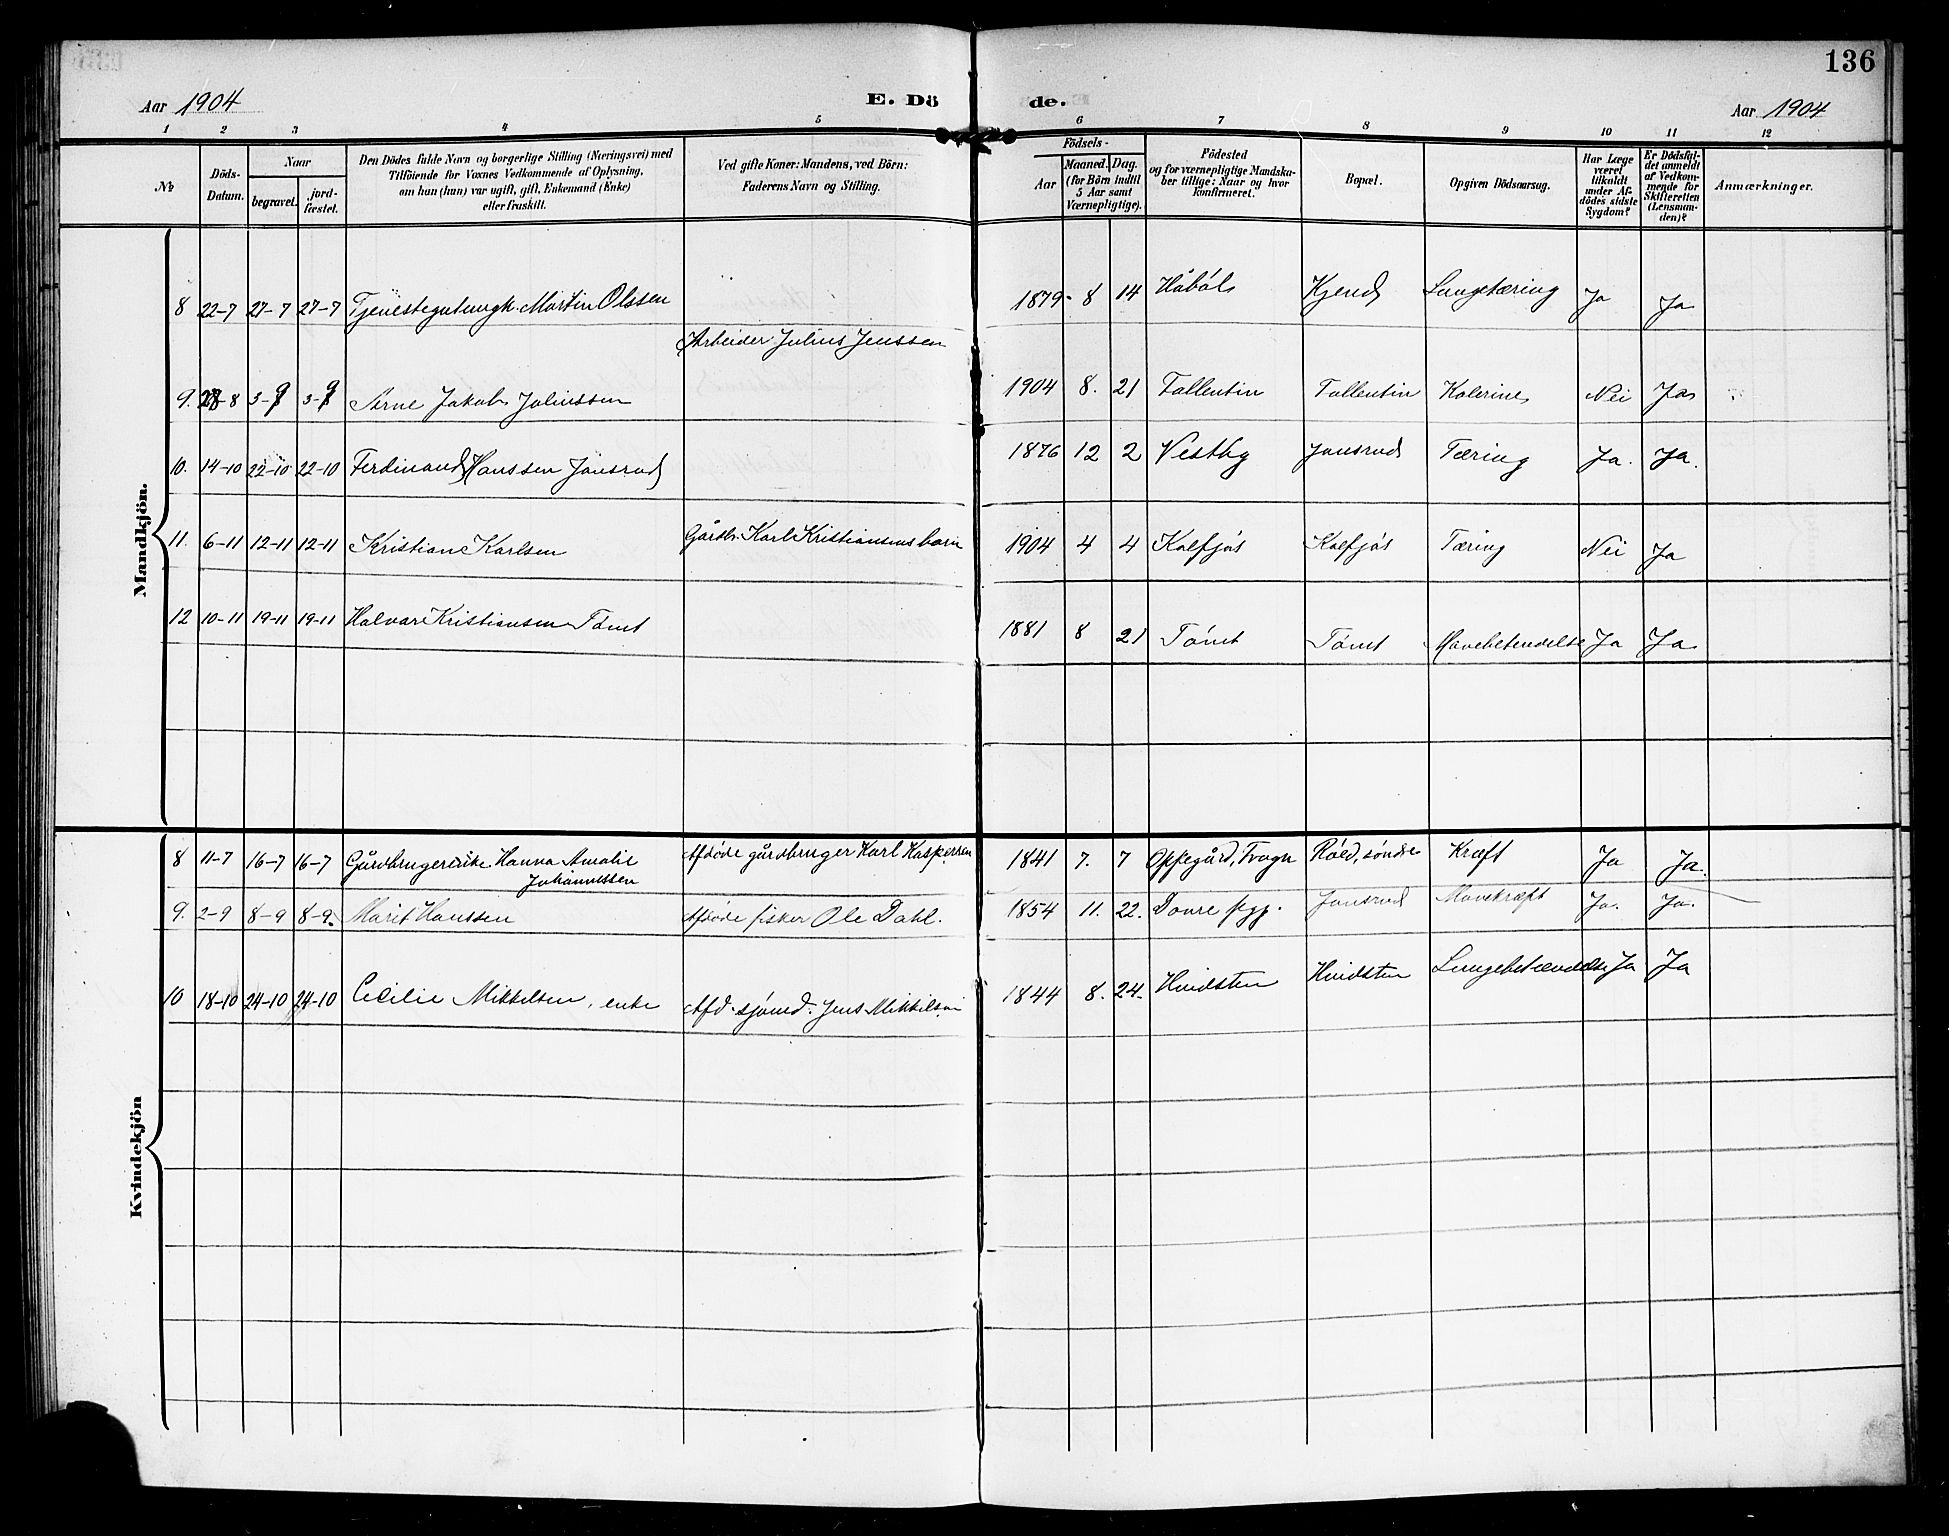 136
Aar 1904 E. Dö de. Aar 1904
1 2 3 4 5 6 7 8 9 10 11 12
№
Döds-Datum.
Naar
begravet.
jord-fæstet.
Den Dödes fulde Navn og borgerlige Stilling (Næringsvei) med
Tilföiende for Voxnes Vedkommende af Oplysning,
om han (hun) var ugift, gift, Enkemand (Enke)
eller fraskilt.
Ved gifte Koner: Mandens, ved Börn:
Faderens Navn og Stilling.
Födsels-
Aar
Maaned. Dag.
(for Börn indtil
5 Aar samt
Værnepligtige).
Födested
og for værnepligtige Mandska-
ber tillige: Naar og hvor
konfirmeret.
Bopæl.
Opgiven Dödsaarsag.
Har Læge
været
tilkaldt
under Af-
dödes sidste
Sygdom?
Er Dödsfal-
det anmeldt
af Vedkom-
mende for
Skifteretten
(Lensman-
den)?
Anmærkninger.
Mandkjön.
8 22-7 27-7 27-7 Tjenestegut ungk. Martin Olssen 1879 8 14 Håbøl Kjend Lungetæring Ja Ja
Arbeider Julius Jenssen
9. 28-8 3-9 3-9 Arne Jakob Juliussen 1904 8. 21 Follentin Follentin Kolerine Nei Ja
10. 14-10 22-10 22-10 Ferdinand Hanssen Jonsrud 1876 12 2 Vestby Jonsrud Tæring Ja. Ja.
11. 6-11 12-11 12-11 Kristian Karlsen Gårdb. Karl Kristiansens barn 1904 4 4 Kolfjøs Kolfjøs Tæring Nei Ja
12 10-11 19-11 19-11 Halvar Kristiansen Tømt 1881 8 21 Tømt Tømt Mavebetendelse Ja Ja
Kvindekjön
8 11-7 16-7 16-7 Gårdbrugerenke Hanna Amalie Afdøde gårdbruger Karl Kaspersen 1841 7. 7 Oppegård, Trøgn Røed, søndre Kræft Ja Ja.
Johannessen
9. 2-9 8-9 8-9. Marit Hanssen Afdøde fisker Ole Dahl. 1854 11. 22. Dovre pgj. Jonsrud Mavekræft Ja. Ja.
10 18-10 24-10 24-10 Cecilie Mikkelsen, enke Afd. sjømd. Jens Mikkelsen 1844 8. 24. Hvidsten Hvidsten Lungebetændelse Ja Ja